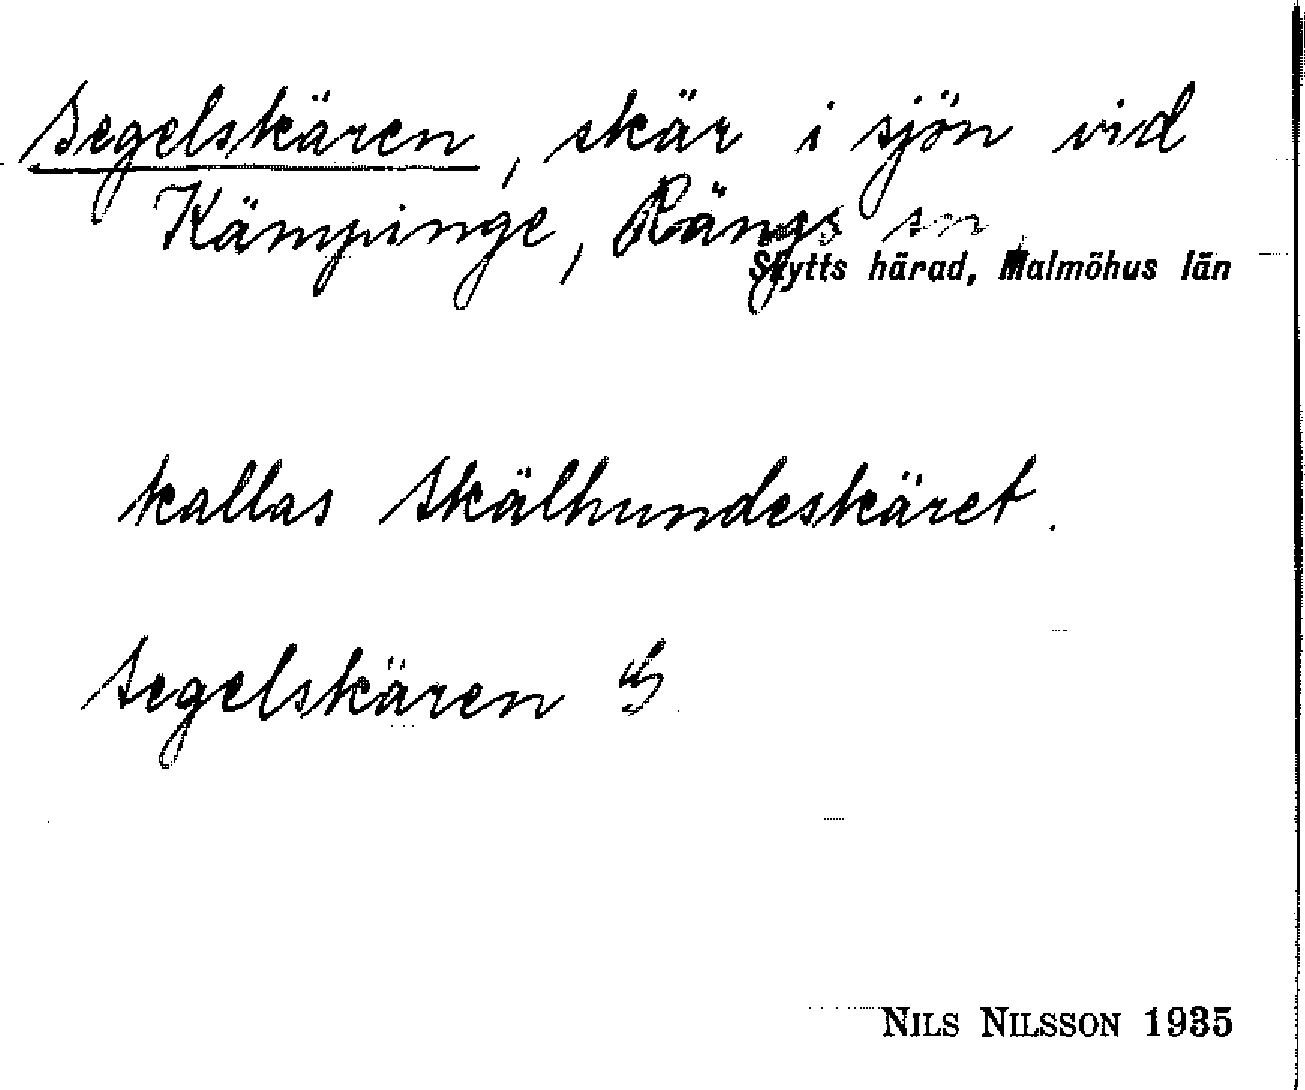 Segelskären, skär i sjön vid
Kämpinge, Rängs sn
Skytts härad, Malmöhus län
kallas Skälhundeskäret.
Segelskären
NILS NILSSON 1935